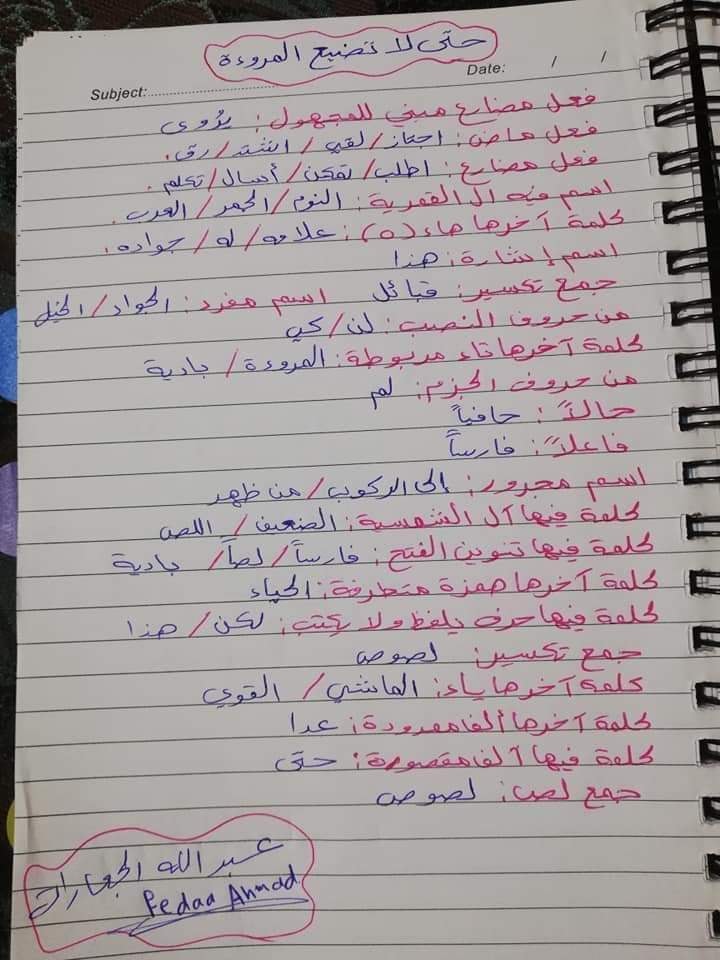 حتى لا تضيع المروءة
Subject:
Date: / /
فعل مضارع مبني للمجهول: يؤوى
فعل ماض: اجتاز/ لقي/ اشتد/ رق.
فعل مضارع: اطلب/ تمكن/ أسال/ تكلم.
اسم فيه ال القمرية: النوم/ الحمر/ العرب.
كلمة آخرها هاء (ه): علامه/ له/ جواده.
اسم إشارة: هذا
جمع تكسير: قبائل اسم مفرد: الجواد/ الخيل
من حروف النصب: لن/ كي
كلمة آخرها تاء مربوطة: المروءة/ بادية
من حروف الجزم: لم
حالاً: حافياً
فاعلاً: فارساً
اسم مجرور: إلى الركوب/ من ظهر
كلمة فيها آل الشمسية: الضعيف/ اللص
كلمة فيها تنوين الفتح: فارساً/ لصاً/ بادية
كلمة آخرها همزة متطرفة: الحياء
كلمة فيها حرف يلفظ ولا يكتب: لكن/ هذا
جمع تكسير: لصوص
كلمة آخرها ياء: الماشي/ القوي
كلمة آخرها ألف ممدودة: عدا
كلمة فيها آلف مقصورة: حتى
جمع لص: لصوص
عبد الله الجعارات
Fedaa Ahmad